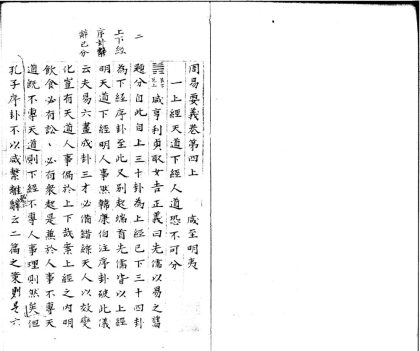 周易要義卷第四上　咸至明夷
一上經天道下經人道恐不可分
咸亨利貞取女吉正義曰先儒以易之舊
題分自此自上三十卦為上經已下三十四卦
二　上下經序卦韓辭已分
為下經序卦至此又別起端首先儒皆以上經
明天道下經明人事然韓康伯注序卦破此儀
云夫易六畫成卦三才必備錯綜天人以效變
化豈有天道人事偏於上下哉案上經之內明
飲食必有訟、必有衆起是兼於人事不專天
道既不專天道則下經不專人事理則然矣但
孔子序卦不以咸繫離繫辭云二篇之策則是六